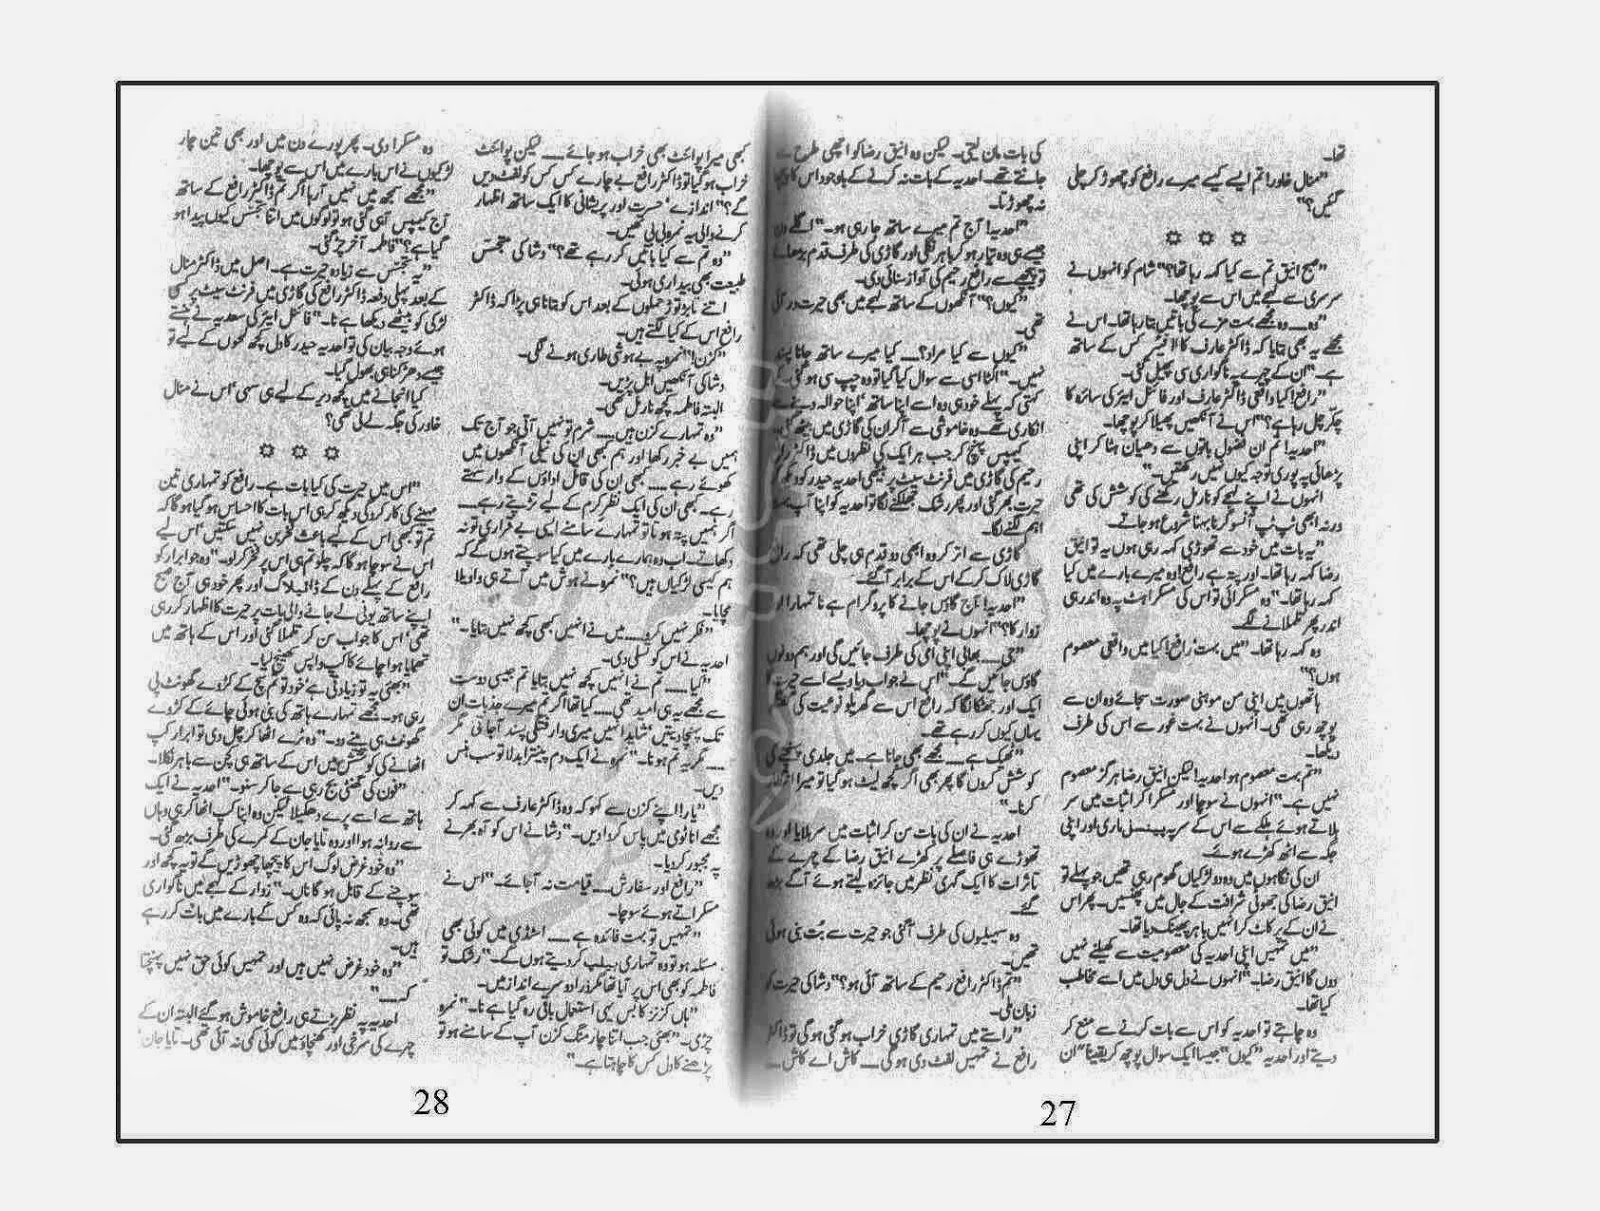 تھا۔
"منال خاور! تم ایسے کیسے میرے رافع کو چھوڑ کر چلی
گئیں؟"
"صبح انیق تم سے کیا کہہ رہا تھا؟" شام کو انہوں نے
سرسری سے لہجے میں اس سے پوچھا۔
"وہ ـــ وہ مجھے بہت مزے کی باتیں بتا رہا تھا۔ اس نے
مجھے یہ بھی بتایا کہ ڈاکٹر عارف کا افیئر کس کے ساتھ
ہے۔" ان کے چہرے پہ ناگواری سی پھیل گئی۔
"رافع! کیا واقعی ڈاکٹر عارف اور فائنل ایئر کی سائرہ کا
چکر چل رہا ہے؟" اس نے آنکھیں پھیلا کر پوچھا۔
"احدیہ! تم ان فضول باتوں سے دھیان ہٹا کر اپنی
پڑھائی پہ پوری توجہ کیوں نہیں رکھتیں۔"
انہوں نے اپنے لہجے کو نارمل رکھنے کی کوشش کی تھی
ورنہ ابھی ٹپ ٹپ آنسو گرنا بہنا شروع ہو جاتے۔
"یہ بات میں خود سے تھوڑی کہہ رہی ہوں یہ تو انیق
رضا کہہ رہا تھا۔ اور پتہ ہے رافع! وہ میرے بارے میں کیا
کہہ رہا تھا۔" وہ مسکرائی تو اس کی مسکراہٹ پہ وہ اندر ہی
اندر پھر تلملانے لگے۔
وہ کہہ رہا تھا۔ "میں بہت رافع! کیا میں واقعی معصوم
ہوں؟"
ہاتھوں میں اپنی من موہنی صورت سجائے وہ ان سے
پوچھ رہی تھی۔ انہوں نے بہت غور سے اس کی طرف
دیکھا۔
"تم بہت معصوم ہو احدیہ! لیکن انیق رضا ہرگز معصوم
نہیں ہے۔" انہوں نے سوچا اور مسکرا کر اثبات میں سر
ہلاتے ہوئے ہلکے سے اس کے سر پہ پینسل ماری اور اپنی
جگہ سے اٹھ کھڑے ہوئے۔
ان کی نگاہوں میں وہ دو لڑکیاں گھوم رہی تھیں جو پہلے تو
انیق رضا کی جھوٹی شرافت کے جال میں پھنسیں۔ پھر اس
نے ان کے پر کاٹ کر انہیں باہر پھینک دیا تھا۔
"میں تمہیں اپنی احدیہ کی معصومیت سے کھیلنے نہیں
دوں گا انیق رضا۔" انہوں نے دل ہی دل میں اسے مخاطب
کیا تھا۔
وہ چاہتے تو احدیہ کو اس سے بات کرنے سے منع کر
دیتے اور احدیہ "کیوں" جیسا ایک سوال پوچھ کر یقیناً "ان
کی بات مان لیتی۔ لیکن وہ انیق رضا کو اچھی طرح سے
جانتے تھے۔ احدیہ کے بات نہ کرنے کے باوجود اس کا پیچھا
نہ چھوڑتا۔
"احدیہ! آج تم میرے ساتھ جا رہی ہو۔" اگلے دن
جیسے ہی وہ تیار ہو کر باہر نکلی اور گاڑی کی طرف قدم بڑھائے
تو پیچھے سے رافع رحیم کی آواز سنائی دی۔
"کیوں؟" آنکھوں کے ساتھ لہجے میں بھی حیرت در آئی
تھی۔
"کیوں سے کیا مراد؟ ـــ کیا میرے ساتھ جانا پسند
نہیں۔" الٹا اسی سے سوال کیا گیا تو وہ چپ سی ہو گئی۔
کہتی کہ پہلے خود ہی وہ اسے اپنا ساتھ، اپنا حوالہ دینے سے
انکاری تھے۔ وہ خاموشی سے آ کر ان کی گاڑی میں بیٹھ گئی۔
کیمپس پہنچ کر جب ہر ایک کی نظروں میں ڈاکٹر رافع
رحیم کی گاڑی میں فرنٹ سیٹ پر بیٹھی احدیہ حیدر کو دیکھ کر
حیرت بھر گئی اور پھر رشک جھلکنے لگا تو احدیہ کو اپنا آپ بہت
اہم لگنے لگا۔
گاڑی سے اتر کر وہ ابھی دو قدم ہی چلی تھی کہ رافع
گاڑی لاک کر کے اس کے برابر آ گئے۔
"احدیہ! آج گاؤں جانے کا پروگرام ہے نا تمہارا اور
زوار کا؟" انہوں نے پوچھا۔
"جی ـــ بھائی اپنی امی کی طرف جائیں گی اور ہم دونوں
گاؤں جائیں گے۔" اس نے جواب دیا ویسے اسے حیرت کا
ایک اور جھٹکا لگا کہ رافع اس سے گھریلو نوعیت کی گفتگو
یہاں کیوں کر رہے تھے۔
"ٹھیک ہے ـــ مجھے بھی جانا ہے۔ میں جلدی پہنچنے کی
کوشش کروں گا پھر بھی اگر کچھ لیٹ ہو گیا تو میرا انتظار
کرنا۔"
احدیہ نے ان کی بات سن کر اثبات میں سر ہلایا اور وہ
تھوڑے ہی فاصلے پر کھڑے انیق رضا کے چہرے کے
تاثرات کا ایک گہری نظر میں جائزہ لیتے ہوئے آگے بڑھ
گئے۔
وہ سہیلیوں کی طرف آ گئی جو حیرت سے بت بنی ہوئی
تھیں۔
"تم ڈاکٹر رافع رحیم کے ساتھ آئی ہو؟" وشا کی حیرت کو
زبان ملی۔
"راستے میں تمہاری گاڑی خراب ہو گئی ہو گی تو ڈاکٹر
رافع نے تمہیں لفٹ دی ہو گی ـــ کاش اے کاش ـــ
27
کبھی میرا پوائنٹ بھی خراب ہو جائے ـــ لیکن پوائنٹ
خراب ہو گیا تو ڈاکٹر رافع بے چارے کس کس کو لفٹ دیں
گے؟" اندازے، حسرت اور پریشانی کا ایک ساتھ اظہار
کرنے والی یہ نمرہ بی بی تھیں۔
"وہ تم سے کیا باتیں کر رہے تھے؟" وشا کی متجسس
طبیعت بھی بیدار ہوئی۔
اتنے تابڑ توڑ حملوں کے بعد اس کو بتانا ہی پڑا کہ ڈاکٹر
رافع اس کے کیا لگتے ہیں۔
"کزن!" نمرہ پہ بے ہوشی طاری ہونے لگی۔
وشا کی آنکھیں ابل پڑیں۔
البتہ فاطمہ کچھ نارمل تھی۔
"وہ تمہارے کزن ہیں ـــ شرم تو نہیں آتی جو آج تک
ہمیں بے خبر رکھا اور ہم کبھی ان کی نیلی آنکھوں میں
کھوئے رہے ـــ کبھی ان کی قاتل اداؤں کے وار سہتے
رہے۔ کبھی ان کی ایک نظر کرم کے لیے تڑپتے رہے ـــ
اگر ہمیں پتہ ہوتا تو تمہارے سامنے ایسی بے قراری تو نہ
دکھاتے۔ اب وہ ہمارے بارے میں کیا سوچتے ہوں گے کہ
ہم کیسی لڑکیاں ہیں؟" نمرہ نے ہوش میں آتے ہی واویلا
مچایا۔
"فکر نہیں کرو ـــ میں نے انہیں کبھی کچھ نہیں بتایا۔"
احدیہ نے اس کو تسلی دی۔
"کیا ـــ تم نے انہیں کچھ نہیں بتایا تم جیسی دوست
سے مجھے یہ ہی امید تھی ـــ کیا تھا اگر تم میرے جذبات ان
تک پہنچا دیتیں، شاید انہیں میری وارفتگی پسند آ جاتی مگر
ـــ مگر یہ تم ہو نا۔" نمرہ نے ایک دم پینترا بدلا تو سب ہنس
دیں۔
"یار! اپنے کزن سے کہو کہ وہ ڈاکٹر عارف سے کہہ کر
مجھے اناٹومی میں پاس کروا دیں۔" وشا نے اس کو آہ بھرنے
پہ مجبور کر دیا۔
"رافع اور سفارش ـــ قیامت نہ آ جائے۔" اس نے
مسکراتے ہوئے سوچا۔
"تمہیں تو بہت فائدہ ہے ـــ اسٹڈی میں کوئی بھی
مسئلہ ہو تو وہ تمہاری ہیلپ کر دیتے ہوں گے۔" رشک تو
فاطمہ کو بھی اس پر آیا تھا مگر ذرا دوسرے انداز میں۔
"ہاں کزنز کا بس یہی استعمال باقی رہ گیا ہے نا۔" نمرہ
چڑی۔ "بھئی جب اتنا چارمنگ کزن آپ کے سامنے ہو تو
پڑھنے کا دل کس کا چاہتا ہے۔"
وہ مسکرا دی۔ پھر پورے دن میں اور بھی تین چار
لڑکیوں نے اس بارے میں اس سے پوچھا۔
"مجھے سمجھ میں نہیں آ رہا اگر تم ڈاکٹر رافع کے ساتھ
آج کیمپس آ ہی گئی ہو تو لوگوں میں اتنا تجسس کیوں پیدا ہو
گیا ہے؟" فاطمہ آخر چڑ گئی۔
"یہ تجسس سے زیادہ حیرت ہے۔ اصل میں ڈاکٹر منال
کے بعد پہلی دفعہ ڈاکٹر رافع کی گاڑی میں فرنٹ سیٹ پر کسی
لڑکی کو بیٹھے دیکھا ہے نا۔" فائنل ایئر کی سعدیہ نے ہنستے
ہوئے وجہ بیان کی تو احدیہ حیدر کا دل کچھ لمحوں کے لیے تو
جیسے دھڑکنا ہی بھول گیا۔
کیا انجانے میں کچھ دیر کے لیے ہی سہی، اس نے منال
خاور کی جگہ لے لی تھی؟
"اس میں حیرت کی کیا بات ہے۔ رافع کو تمہاری تین
مہینے کی کارکردگی دیکھ کر ہی اس بات کا احساس ہو گیا ہو گا کہ
تم تو کبھی اس کے لیے باعث فخر بن نہیں سکتیں، اس لیے
اس نے سوچا ہو گا کہ چلو تم ہی اس پر فخر کر لو۔" وہ جو ابرار کو
رافع کے پہلے دن کے ڈائیلاگ اور پھر خود ہی آج صبح
اپنے ساتھ یونی لے جانے والی بات پر حیرت کا اظہار کر رہی
تھی، اس کا جواب سن کر تلملا گئی اور اس کے ہاتھ میں
تھمایا ہوا چائے کا کپ واپس کھینچ لیا۔
"بھئی یہ تو زیادتی ہے، خود تو تم سچ کے کڑوے گھونٹ پی
رہی ہو۔ مجھے تمہارے ہاتھ کی بنی ہوئی چائے کے کڑوے
گھونٹ ہی پینے دو۔" وہ ٹرے اٹھا کر چل دی تو ابرار کپ
اٹھانے کی کوشش میں اس کے ساتھ ہی کچن سے باہر نکلا۔
"فون کی گھنٹی بج رہی ہے جا کر سنو۔" احدیہ نے ایک
ہاتھ سے اسے پرے دھکیلا لیکن وہ اپنا کپ اٹھا کر ہی وہاں
سے روانہ ہوا اور وہ تایا جان کے کمرے کی طرف بڑھ گئی۔
"وہ خود غرض لوگ اس کا پیچھا چھوڑیں گے تو یہ کچھ اور
سوچنے کے قابل ہو گا ناں۔" زوار کے لہجے میں ناگواری
تھی۔ وہ سمجھ نہ پائی کہ وہ کس کے بارے میں بات کر رہے
ہیں۔
"وہ خود غرض نہیں ہیں اور تمہیں کوئی حق نہیں پہنچتا
کہ ـــ"
احدیہ پہ نظر پڑتے ہی رافع خاموش ہو گئے البتہ ان کے
چہرے کی سرخی اور کھنچاؤ میں کوئی کمی نہ آئی تھی۔ تایا جان
28